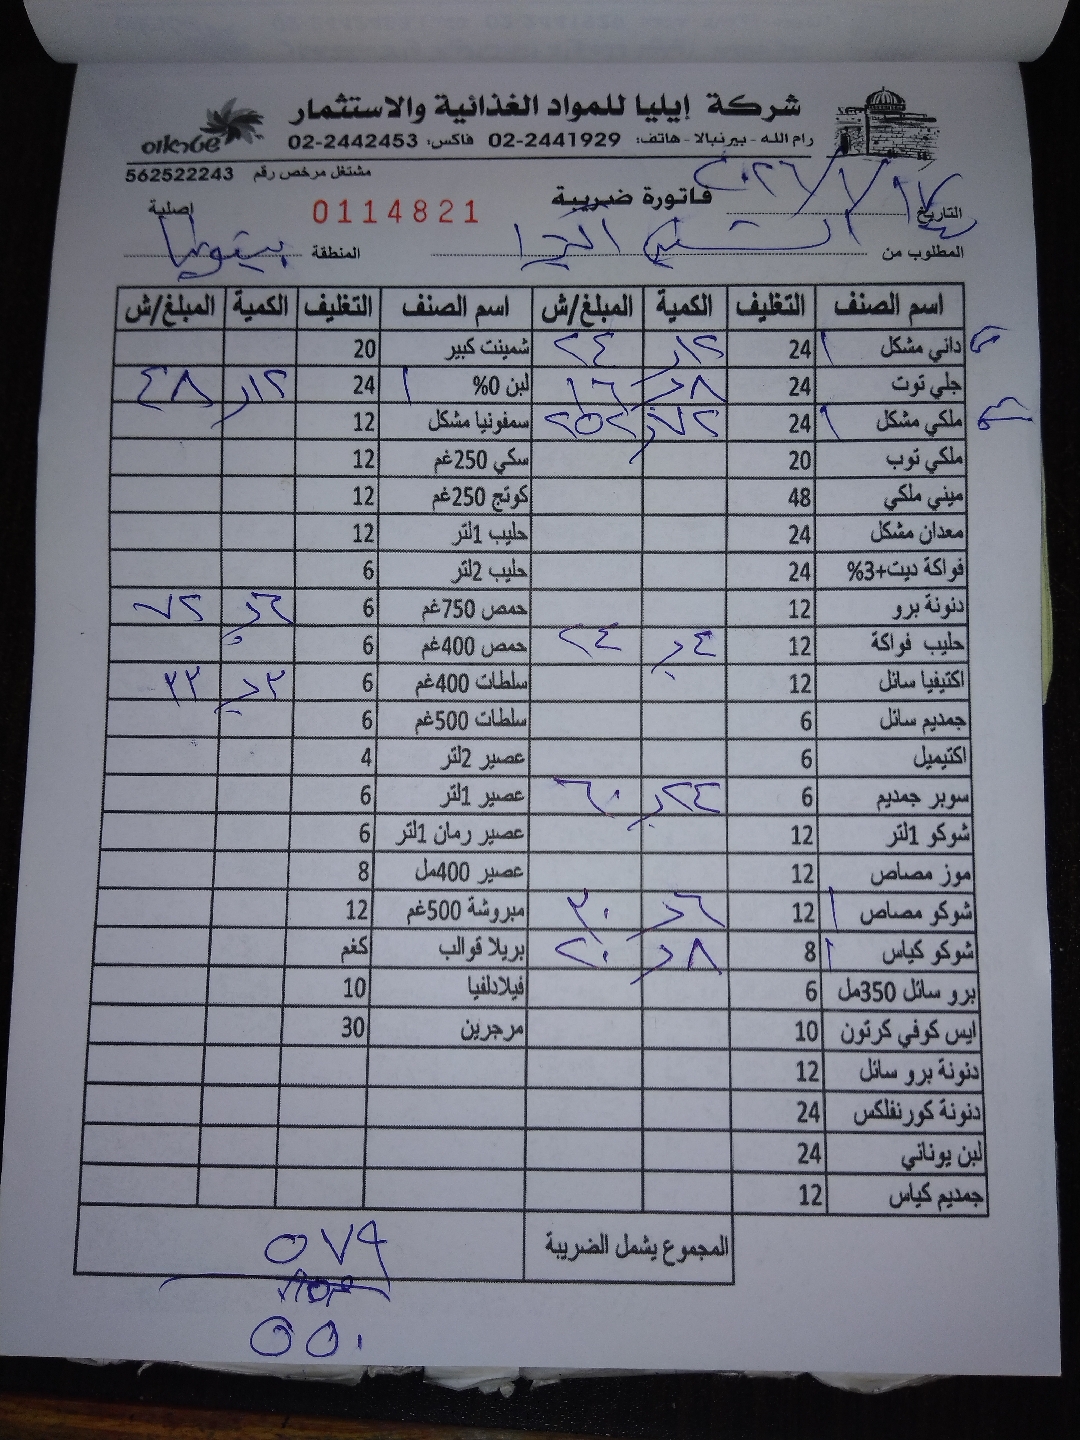 شركة إيليا للمواد الغذائية والاستثمار
רام الله - بيرنبالا - هاتف: 02-2441929 فاكس: 02-2442453
שטראוס
مشتغل مرخص رقم 562522243
فاتورة ضريبة
0114821
اصلية
التاريخ ٢٠٢٦/٧/١٤
المطلوب من
المنطقة بيتونيا
اسم الصنف التغليف الكمية المبلغ/ش اسم الصنف التغليف الكمية المبلغ/ش
داني مشكل ١ 24 ١٢ ٢٤ شمينت كبير 20
جلي توت 24 ٨ ١٦ لبن 0% ١ 24 ١٢ ٤٨
ملكي مشكل ١ 24 ٧٢ ٢٥٢ سمفونيا مشكل 12
ملكي توب 20 سكي 250غم 12
ميني ملكي 48 كوتج 250غم 12
معدان مشكل 24 حليب 1لتر 12
فواكة ديت+3% 24 حليب 2لتر 6
دنونة برو 12 حمص 750غم 6 ٦ ٧٢
حليب فواكة 12 ٤ ٢٤ حمص 400غم 6
اكتيفيا سائل 12 سلطات 400غم 6 ٣ ٣٣
جمديم سائل 6 سلطات 500غم 6
اكتيميل 6 عصير 2لتر 4
سوبر جمديم 6 ٢٤ ٦٠ عصير 1لتر 6
شوكو 1لتر 12 عصير رمان 1لتر 6
موز مصاص 12 عصير 400مل 8
شوكو مصاص ١ 12 ٦ ٣٠ مبروشة 500غم 12
شوكو كياس ١ 8 ٨ ٢٠ بريلا قوالب كغم
برو سائل 350مل 6 فيلادلفيا 10
ايس كوفي كرتون 10 مرجرين 30
دنونة برو سائل 12
دنونة كورنفلكس 24
لبن يوناني 24
جمديم كياس 12
المجموع يشمل الضريبة ٥٧٩
٥٥٠